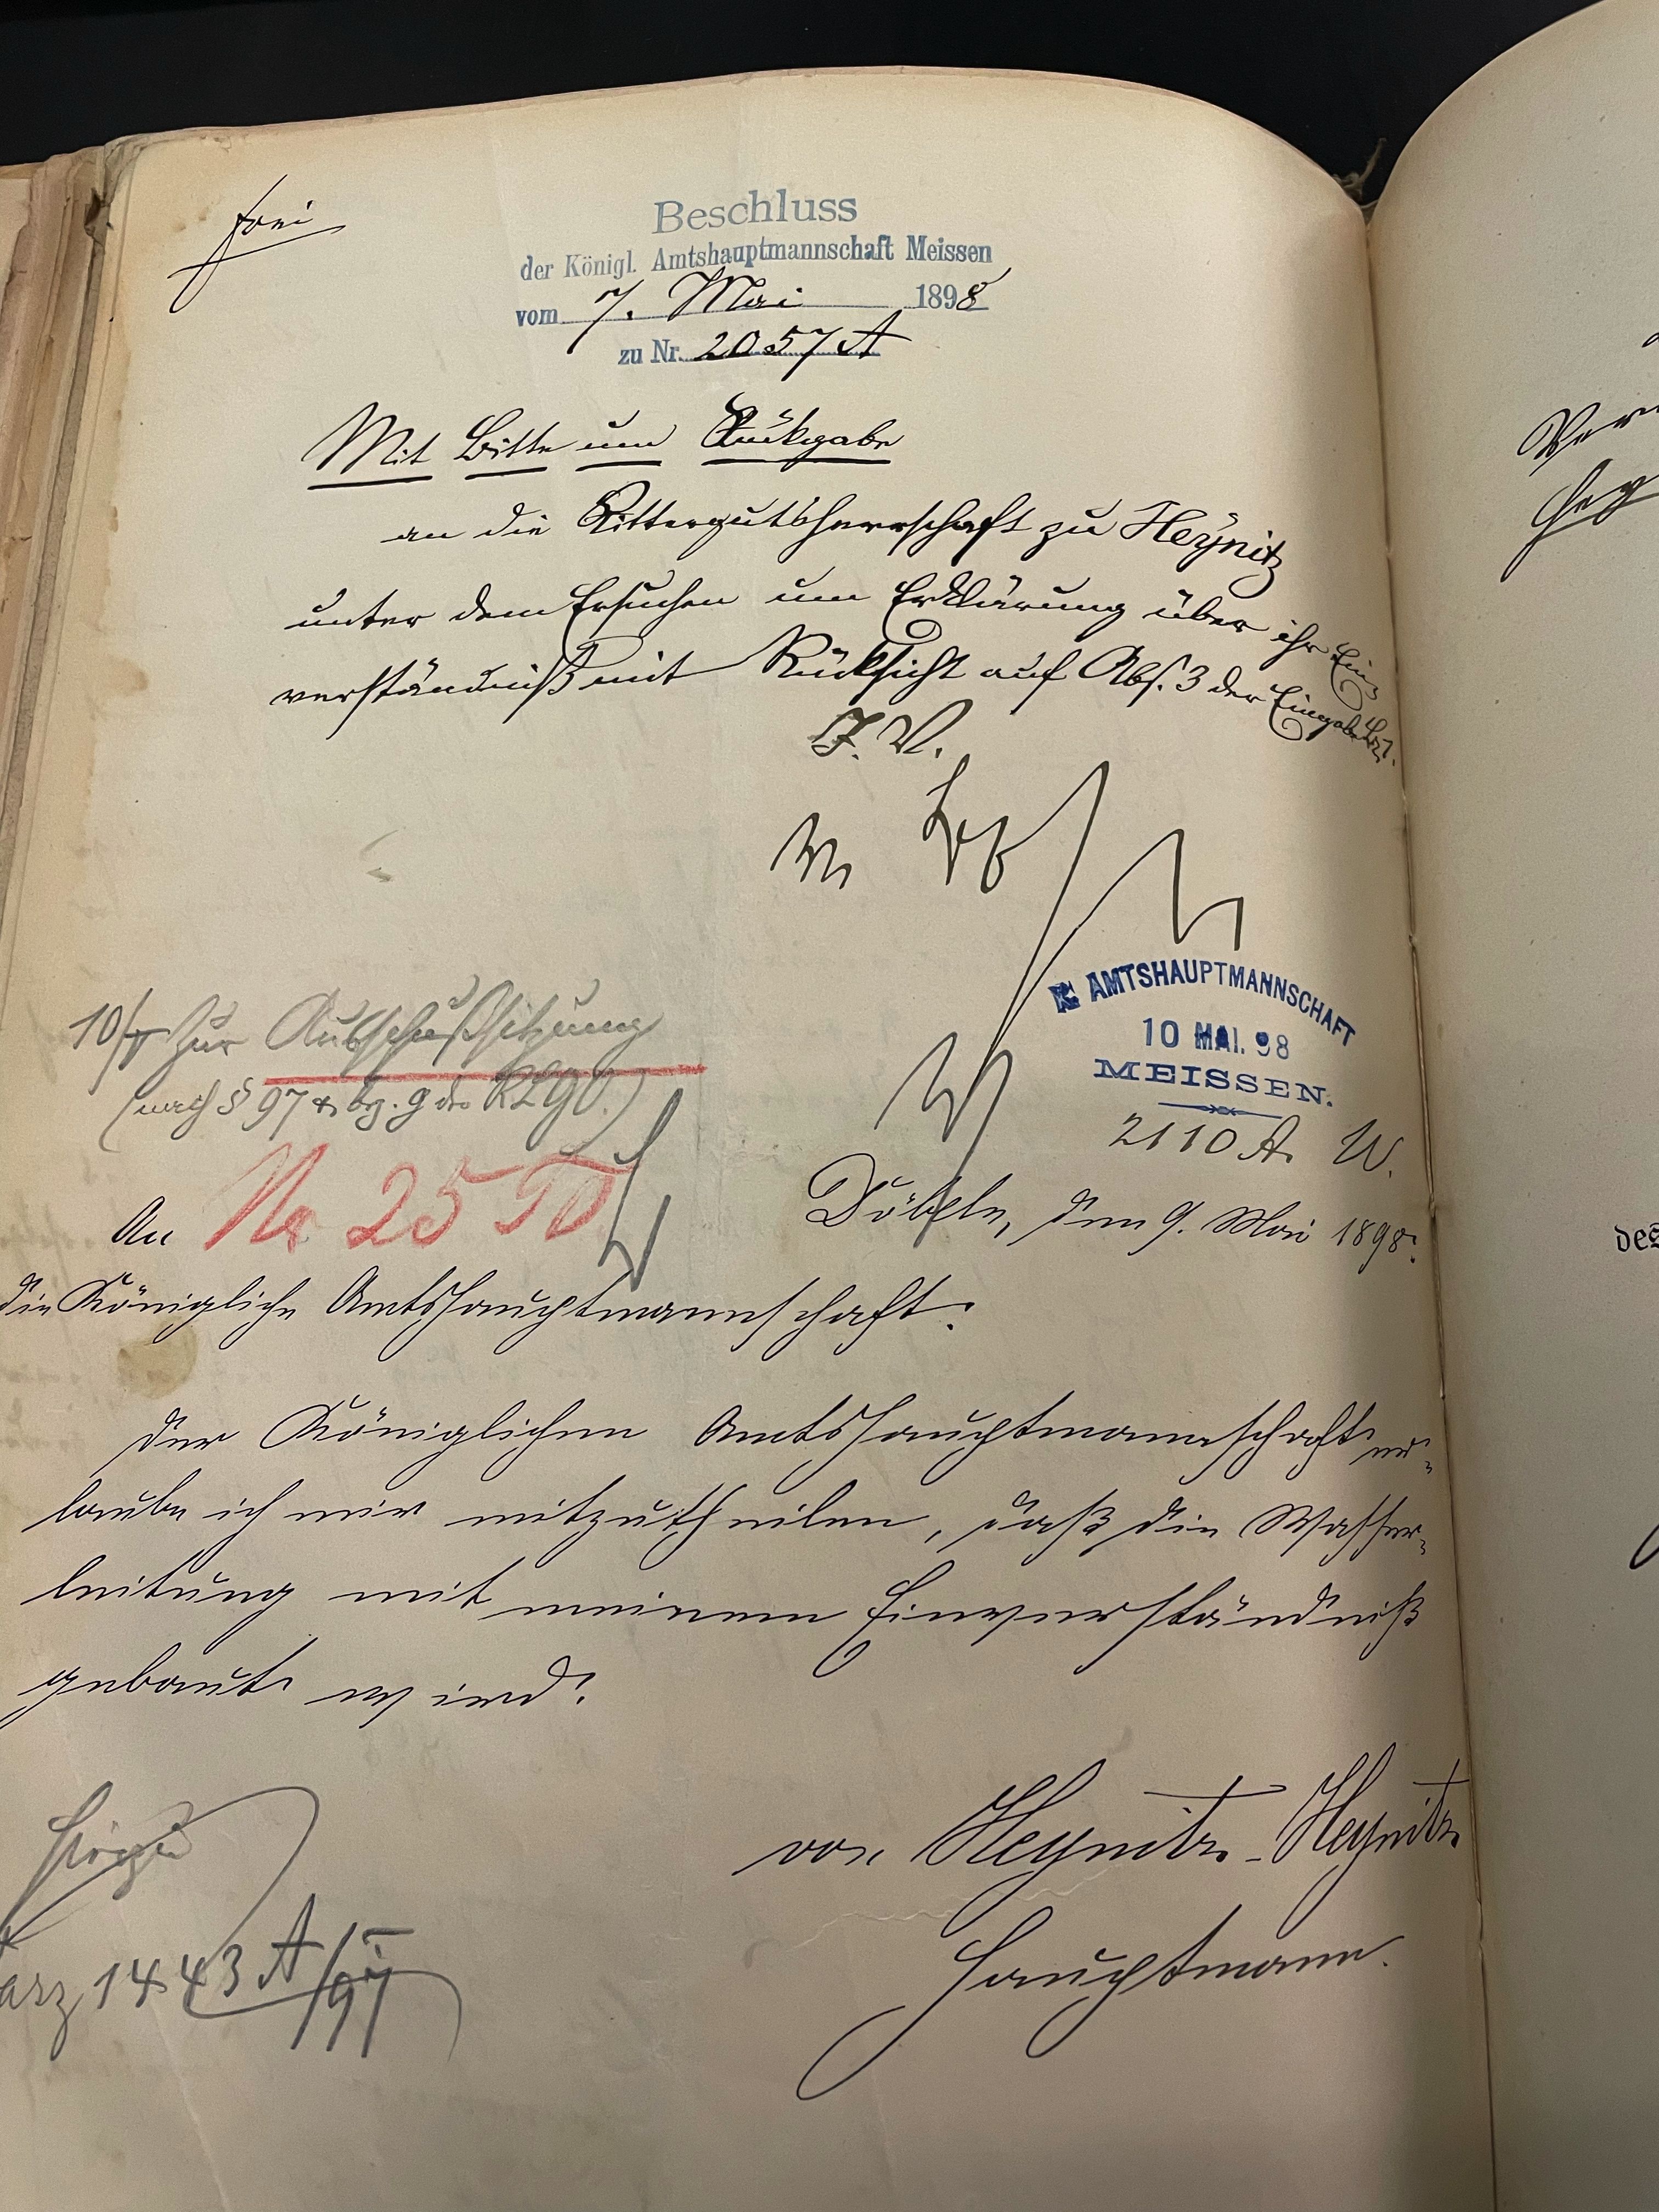 frei
Beschluss
der Königl. Amtshauptmannschaft Meissen
vom 7. Mai 1898
zu Nr. 2057 A
Mit Bitte um Rückgabe
an die Rittergutsherrschaft zu Heÿnitz
unter dem Ersuchen um Erklärung über ihr Ein-
verständniß mit Rücksicht auf Abs. 3 der Eingabe
I. V.
K. AMTSHAUPTMANNSCHAFT
10 MAI. 98
MEISSEN.
2110 A. W.
10/5 Zur Ausschußsitzung
(nach § 97
No 25
Döbeln, den 9. Mai 1898.
An
die Königliche Amtshauptmannschaft.
Der Königlichen Amtshauptmannschaft er-
laube ich mir mitzutheilen, daß die Wasser-
leitung mit meinem Einverständniß
gebaut wird.
von Heynitz-Heynitz
Hauptmann.
Hierzu
1443 A/97
Ver
Geg
des